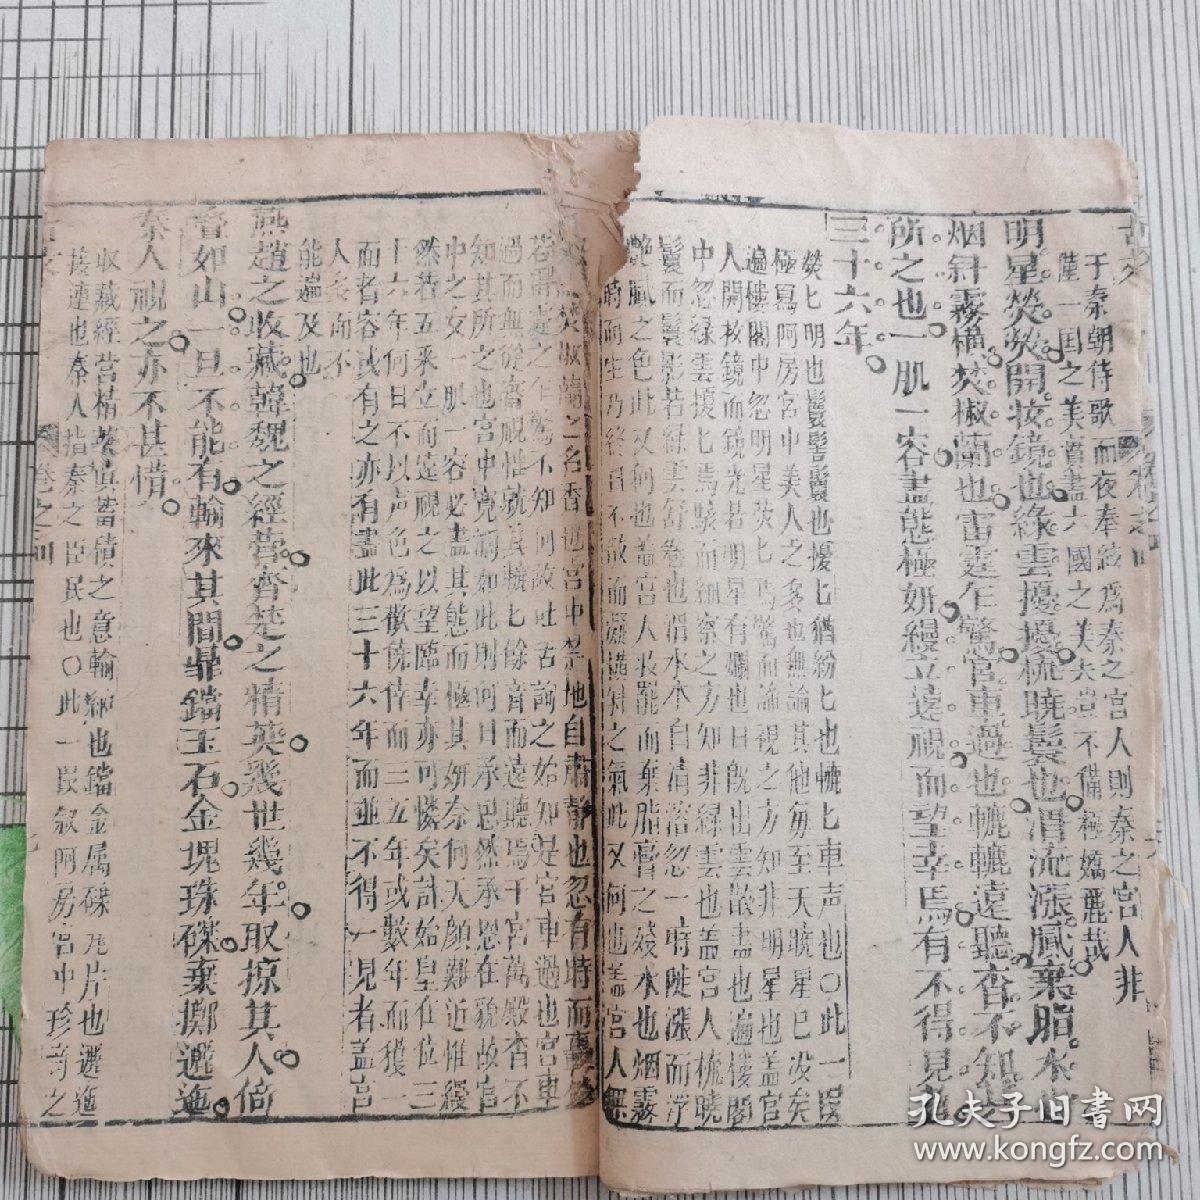 于秦朝侍歌而夜奉絃爲秦之宮人則秦之宮人非
一国之美實盡六國之美夫豈不備極嬌麗哉
明星熒熒開妝鏡也綠雲擾擾梳曉鬟也渭流漲膩棄脂水也
烟斜霧橫焚椒蘭也雷霆乍驚宮車過也轆轆遠聽杳不知其
所之也一肌一容盡態極妍縵立遠視而望幸焉有不得見者
三十六年
熒匕明也鬟髻鬟也擾匕猶紛匕也轆匕車声也〇此一叚
極寫阿房宮中美人之多也無論其他毎至天曉星已沒矣
遍樓閣中忽明星熒匕焉驚而諦視之方知非明星也蓋宮
人開妝鏡而鏡光若明星有爛也日旣出雲散盡也遍樓閣
中忽綠雲擾匕焉駭而細察之方知非綠雲也蓋宮人梳曉
鬟而鬟影若綠雲舒卷也渭水本自清落忽一時陡漲而浮
艷膩之色此又何也蓋宮人妝罷而棄脂膏之殘水也烟霧
時而生乃終日不散而斜之氣此又何也蓋宮人
焚椒蘭之名香也宮中禁地自肅靜也忽有時而
若雷霆之乍驚不知何故吐舌詢之始知是宮車過也宮車
過而無從窺視惟就其轆匕餘音而遠聽焉千宮萬殿杳不
知其所之也宮中寬濶如此則何日承恩然承恩在貌故宮
中之女一肌一容必盡其態而極其妍奈何天顔難近惟縵
然若五采立而遠視之以望臨幸亦可憐矣計始皇在位三
十六年何日不以声色爲歡倖而三五年或數年而獲一
而者容或有之亦有盡此三十六年而並不得一見者蓋宮
人衆而不
能遍及也
燕趙之收藏韓魏之經營齊楚之精英幾世幾年取掠其人倚
疊如山一旦不能有輸來其間鼎鐺玉石金塊珠礫棄擲邐迤
秦人視之亦不甚惜
收藏經營精英眞蓄積之意輸也鐺金属礫瓦片也邐迤
接連也秦人指秦之臣民也〇此一叚叙阿房宮中珍奇之
卷之四
孔夫子旧书网
www.kongfz.com